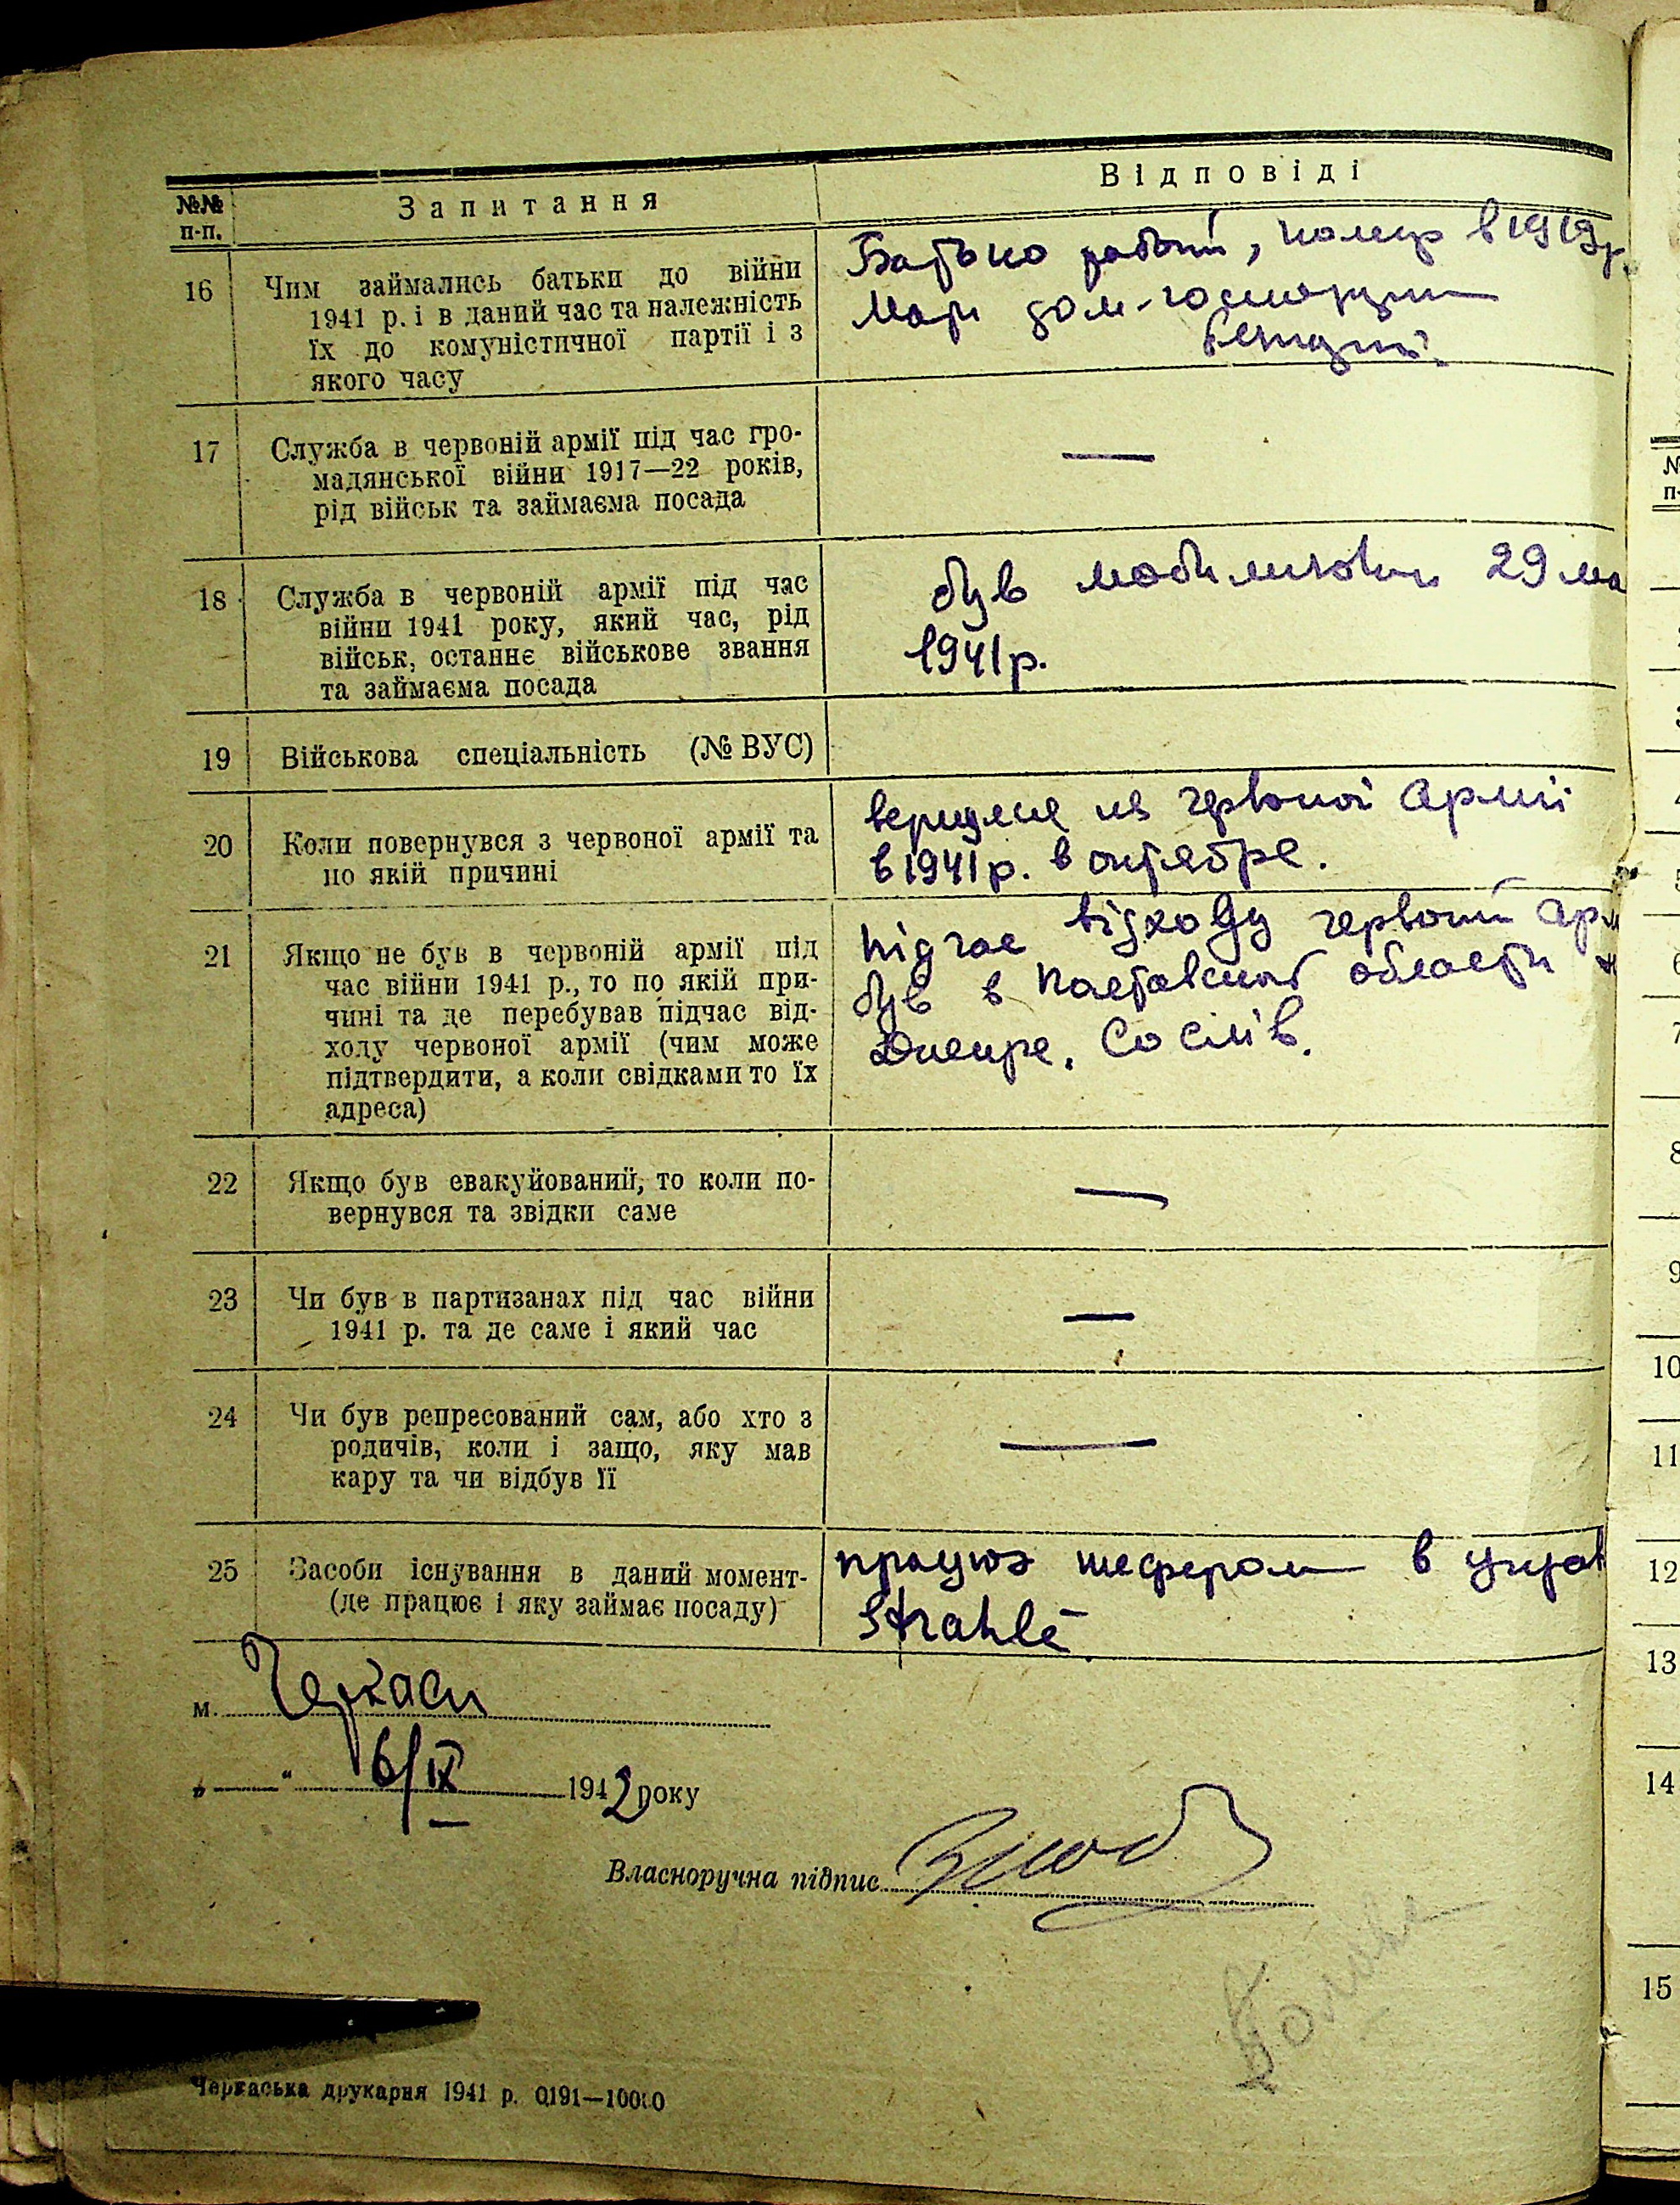 №№ п-п.
Запитання
Відповіді
16
Чим займались батьки до війни
1941 р. і в даний час та належність
їх до комуністичної партії і з
якого часу
Батько рабочй, помер в 1919р.
Мати дом-господарки
17
Служба в червоній армії під час гро-
мадянської війни 1917—22 років,
рід військ та займаєма посада
—
18
Служба в червоній армії під час
війни 1941 року, який час, рід
військ, останнє військове звання
та займаєма посада
був 29 ма
1941р.
19
Військова спеціальність (№ ВУС)
20
Коли повернувся з червоної армії та
по якій причині
из червоної армії
в 1941р. в октябре.
21
Якщо не був в червоній армії під
час війни 1941 р., то по якій при-
чині та де перебував підчас від-
ходу червоної армії (чим може
підтвердити, а коли свідками то їх
адреса)
підчас відходу червоний арм
був в области
Днепре.
22
Якщо був евакуйований, то коли по-
вернувся та звідки саме
—
23
Чи був в партизанах під час війни
1941 р. та де саме і який час
—
24
Чи був репресований сам, або хто з
родичів, коли і защо, яку мав
кару та чи відбув її
—
25
Засоби існування в даний момент-
(де працює і яку займає посаду)
працюэ шефером в
Strahlė
м. Черкаси
„—" 6/IX 1942 року
Власноручна підпис
Черкаська друкарня 1941 р. 0191—10000
№
п-
8
9
10
11
12
13
14
15